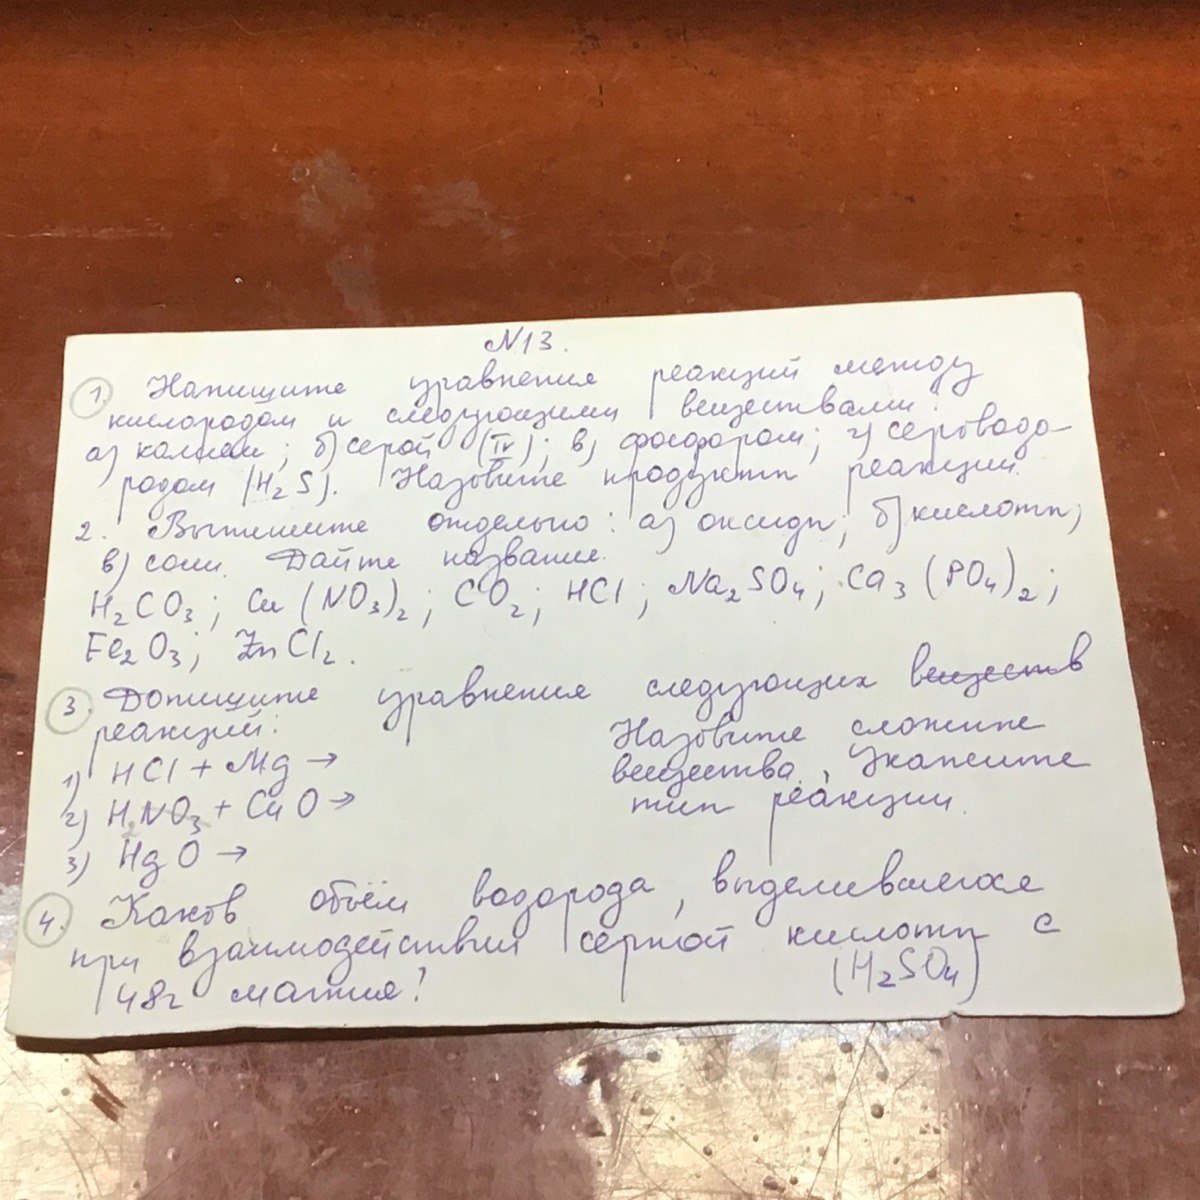 N13.
1. Напишите уравнения реакций между
кислородом и следующими веществами:
а) калием; б) серой (IV); в) фосфором; г) сероводо-
родом (H₂S). Назовите продукты реакции.
2. Выпишите отдельно: а) оксиды; б) кислоты;
в) соли. Дайте названия.
H₂CO₃; Cu(NO₃)₂; CO₂; HCl; Na₂SO₄; Ca₃(PO₄)₂;
Fe₂O₃; ZnCl₂.
3. Допишите уравнения следующих веществ
реакций:
1) HCl + Mg →
2) HNO₃ + CuO →
3) HgO →
Назовите сложные
вещества, Укажите
тип реакции.
4. Каков объём водорода, выделившегося
при взаимодействии серной кислоты с
(H₂SO₄)
48г магния?